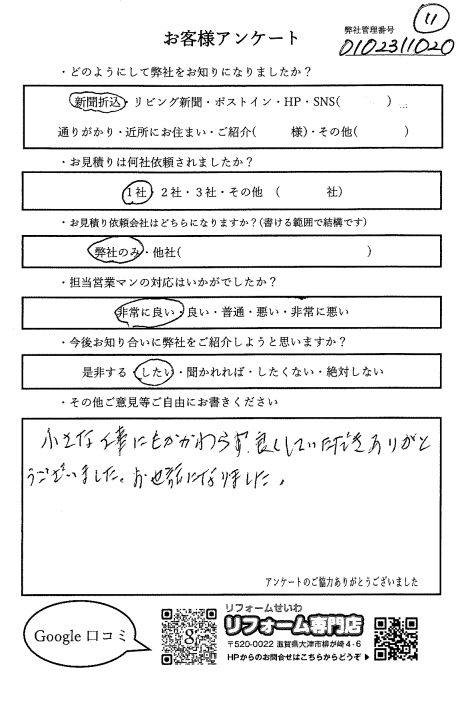 お客様アンケート
弊社管理番号
11
0102311020
・どのようにして弊社をお知りになりましたか？
新聞折込・リビング新聞・ポストイン・HP・SNS(　　　)
通りがかり・近所にお住まい・ご紹介(　　　様)・その他(　　　)
・お見積りは何社依頼されましたか？
1社・2社・3社・その他　(　　　社)
・お見積り依頼会社はどちらになりますか？(書ける範囲で結構です)
弊社のみ・他社(　　　)
・担当営業マンの対応はいかがでしたか？
非常に良い・良い・普通・悪い・非常に悪い
・今後お知り合いに弊社をご紹介しようと思いますか？
是非する・したい・聞かれれば・したくない・絶対しない
・その他ご意見等ご自由にお書きください
小さな仕事にもかかわらず、良くしていただきありがと
うございました。お世話になりました。
アンケートのご協力ありがとうございました
Google 口コミ
リフォームせいわ
リフォーム専門店
〒520-0022 滋賀県大津市柳が崎4-6
HPからのお問合せはこちらからどうぞ▶